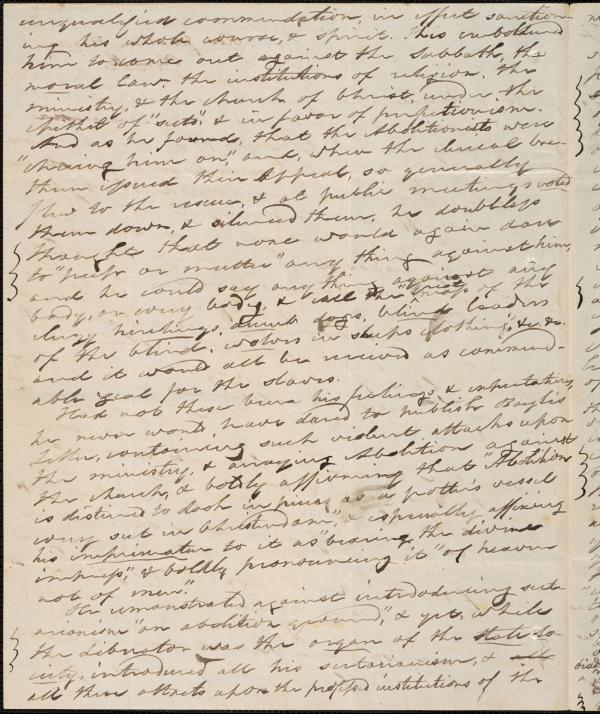 unqualified commendation, in effect sanction-
ing his whole course, & spirit. This imboldened
him to come out against the Sabbath, the
moral law, the institutions of religion, the
ministry, & the church of Christ, under the
epithet of "sects", & in favor of perfectionism.
And as he found, that the Abolitionists were
"cheering him on," and, when the clerical bre-
thren issued their Appeal, so generally
flew to the rescue, & at public meetings voted
them down, & silenced them, he doubtless
thought that none would again dare
to "peep or mutter" any thing against him,
and he could say any thing against any
body, or every body, & call the "great mass of the
clergy hirelings, dumb dogs, blind leaders
of the blind, wolves in sheeps clothing", &c. &c.
and it would all be received as commend-
able zeal for the slaves.
Had not these been his feelings & expectations,
he never would have dared to publish Boyle's
letter, containing such violent attacks upon
the ministry, & arraying Abolition against
the church, & boldly affirming that "Abolition
is destined to dash in pieces as a potter's vessel
every sect in Christendom", & especially affixing
his imprimatur to it as "bearing the divine
impress", & boldly pronouncing it "of heaven
not of men."
He remonstrated against introducing sect-
arianism "on abolition ground", & yet, while
the Liberator was the organ of the State So-
ciety, introduced all his sectarianism, & all
all these attacks upon the professed institutions of the